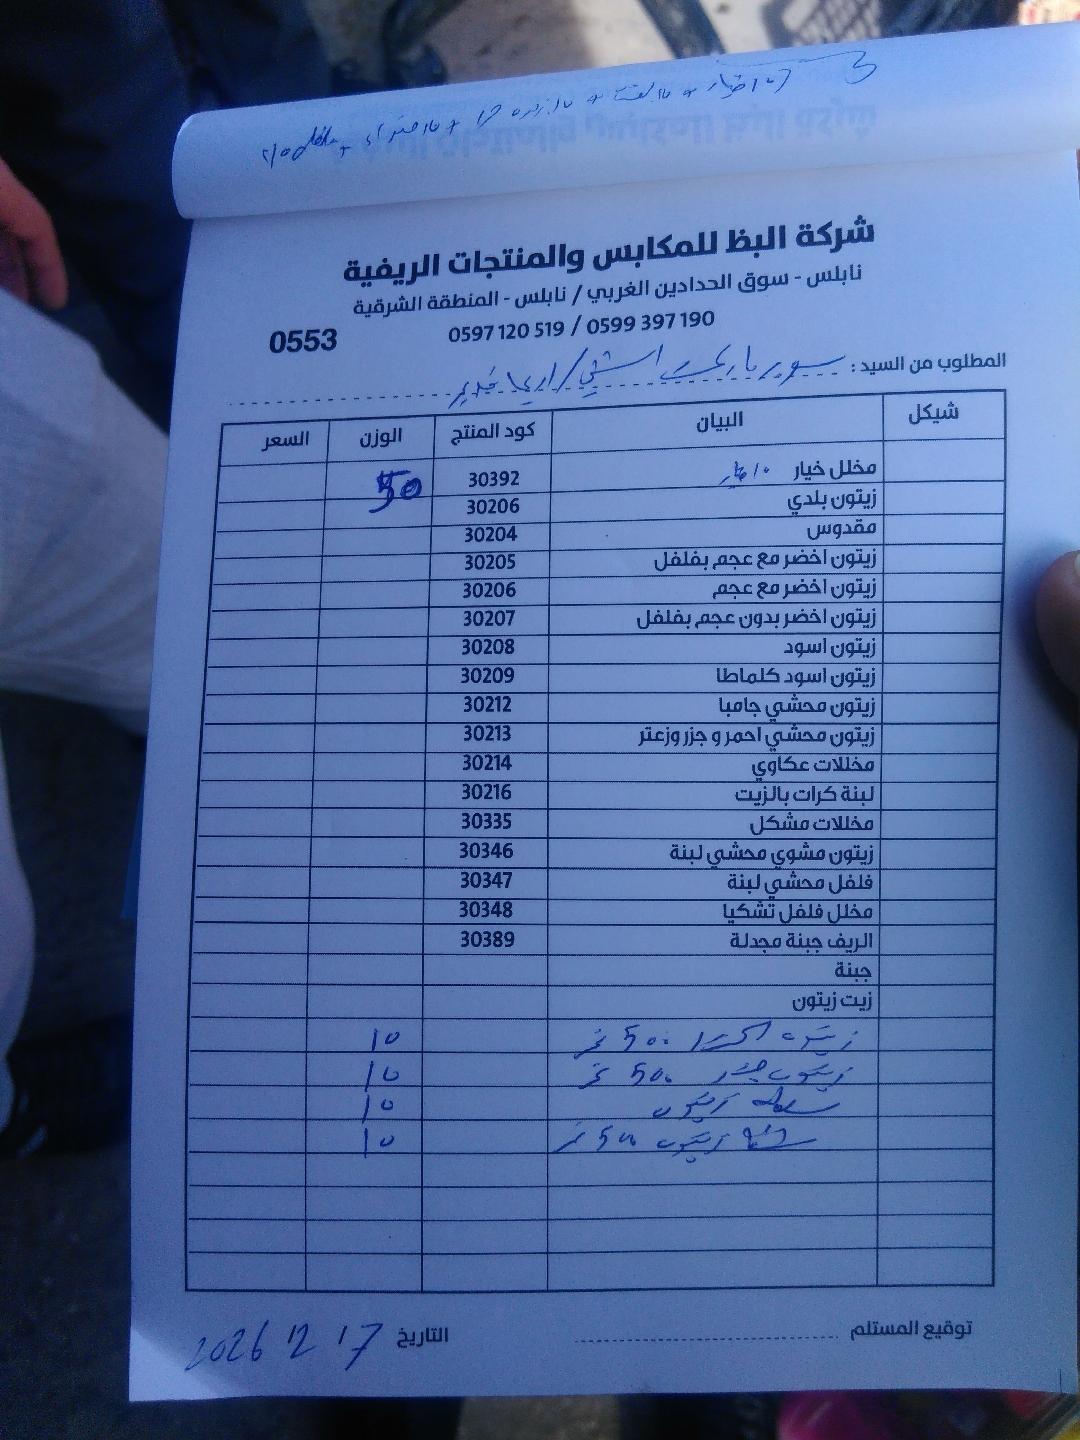 شركة البظ للمكابس والمنتجات الريفية
نابلس - سوق الحدادين الغربي / نابلس - المنطقة الشرقية
0597 120 519 / 0599 397 190
0553
المطلوب من السيد : سوبر ماركت / اريحا
شيكل البيان كود المنتج الوزن السعر
مخلل خيار 30392 50
زيتون بلدي 30206
مقدوس 30204
زيتون اخضر مع عجم بفلفل 30205
زيتون اخضر مع عجم 30206
زيتون اخضر بدون عجم بفلفل 30207
زيتون اسود 30208
زيتون اسود كلماطا 30209
زيتون محشي جامبا 30212
زيتون محشي احمر و جزر وزعتر 30213
مخللات عكاوي 30214
لبنة كرات بالزيت 30216
مخللات مشكل 30335
زيتون مشوي محشي لبنة 30346
فلفل محشي لبنة 30347
مخلل فلفل تشكيا 30348
الريف جبنة مجدلة 30389
جبنة
زيت زيتون
زيتون 500 غم 10
زيتون 500 غم 10
سلطة زيتون 10
زيتون 500 غم 10
توقيع المستلم التاريخ 17 12 2026